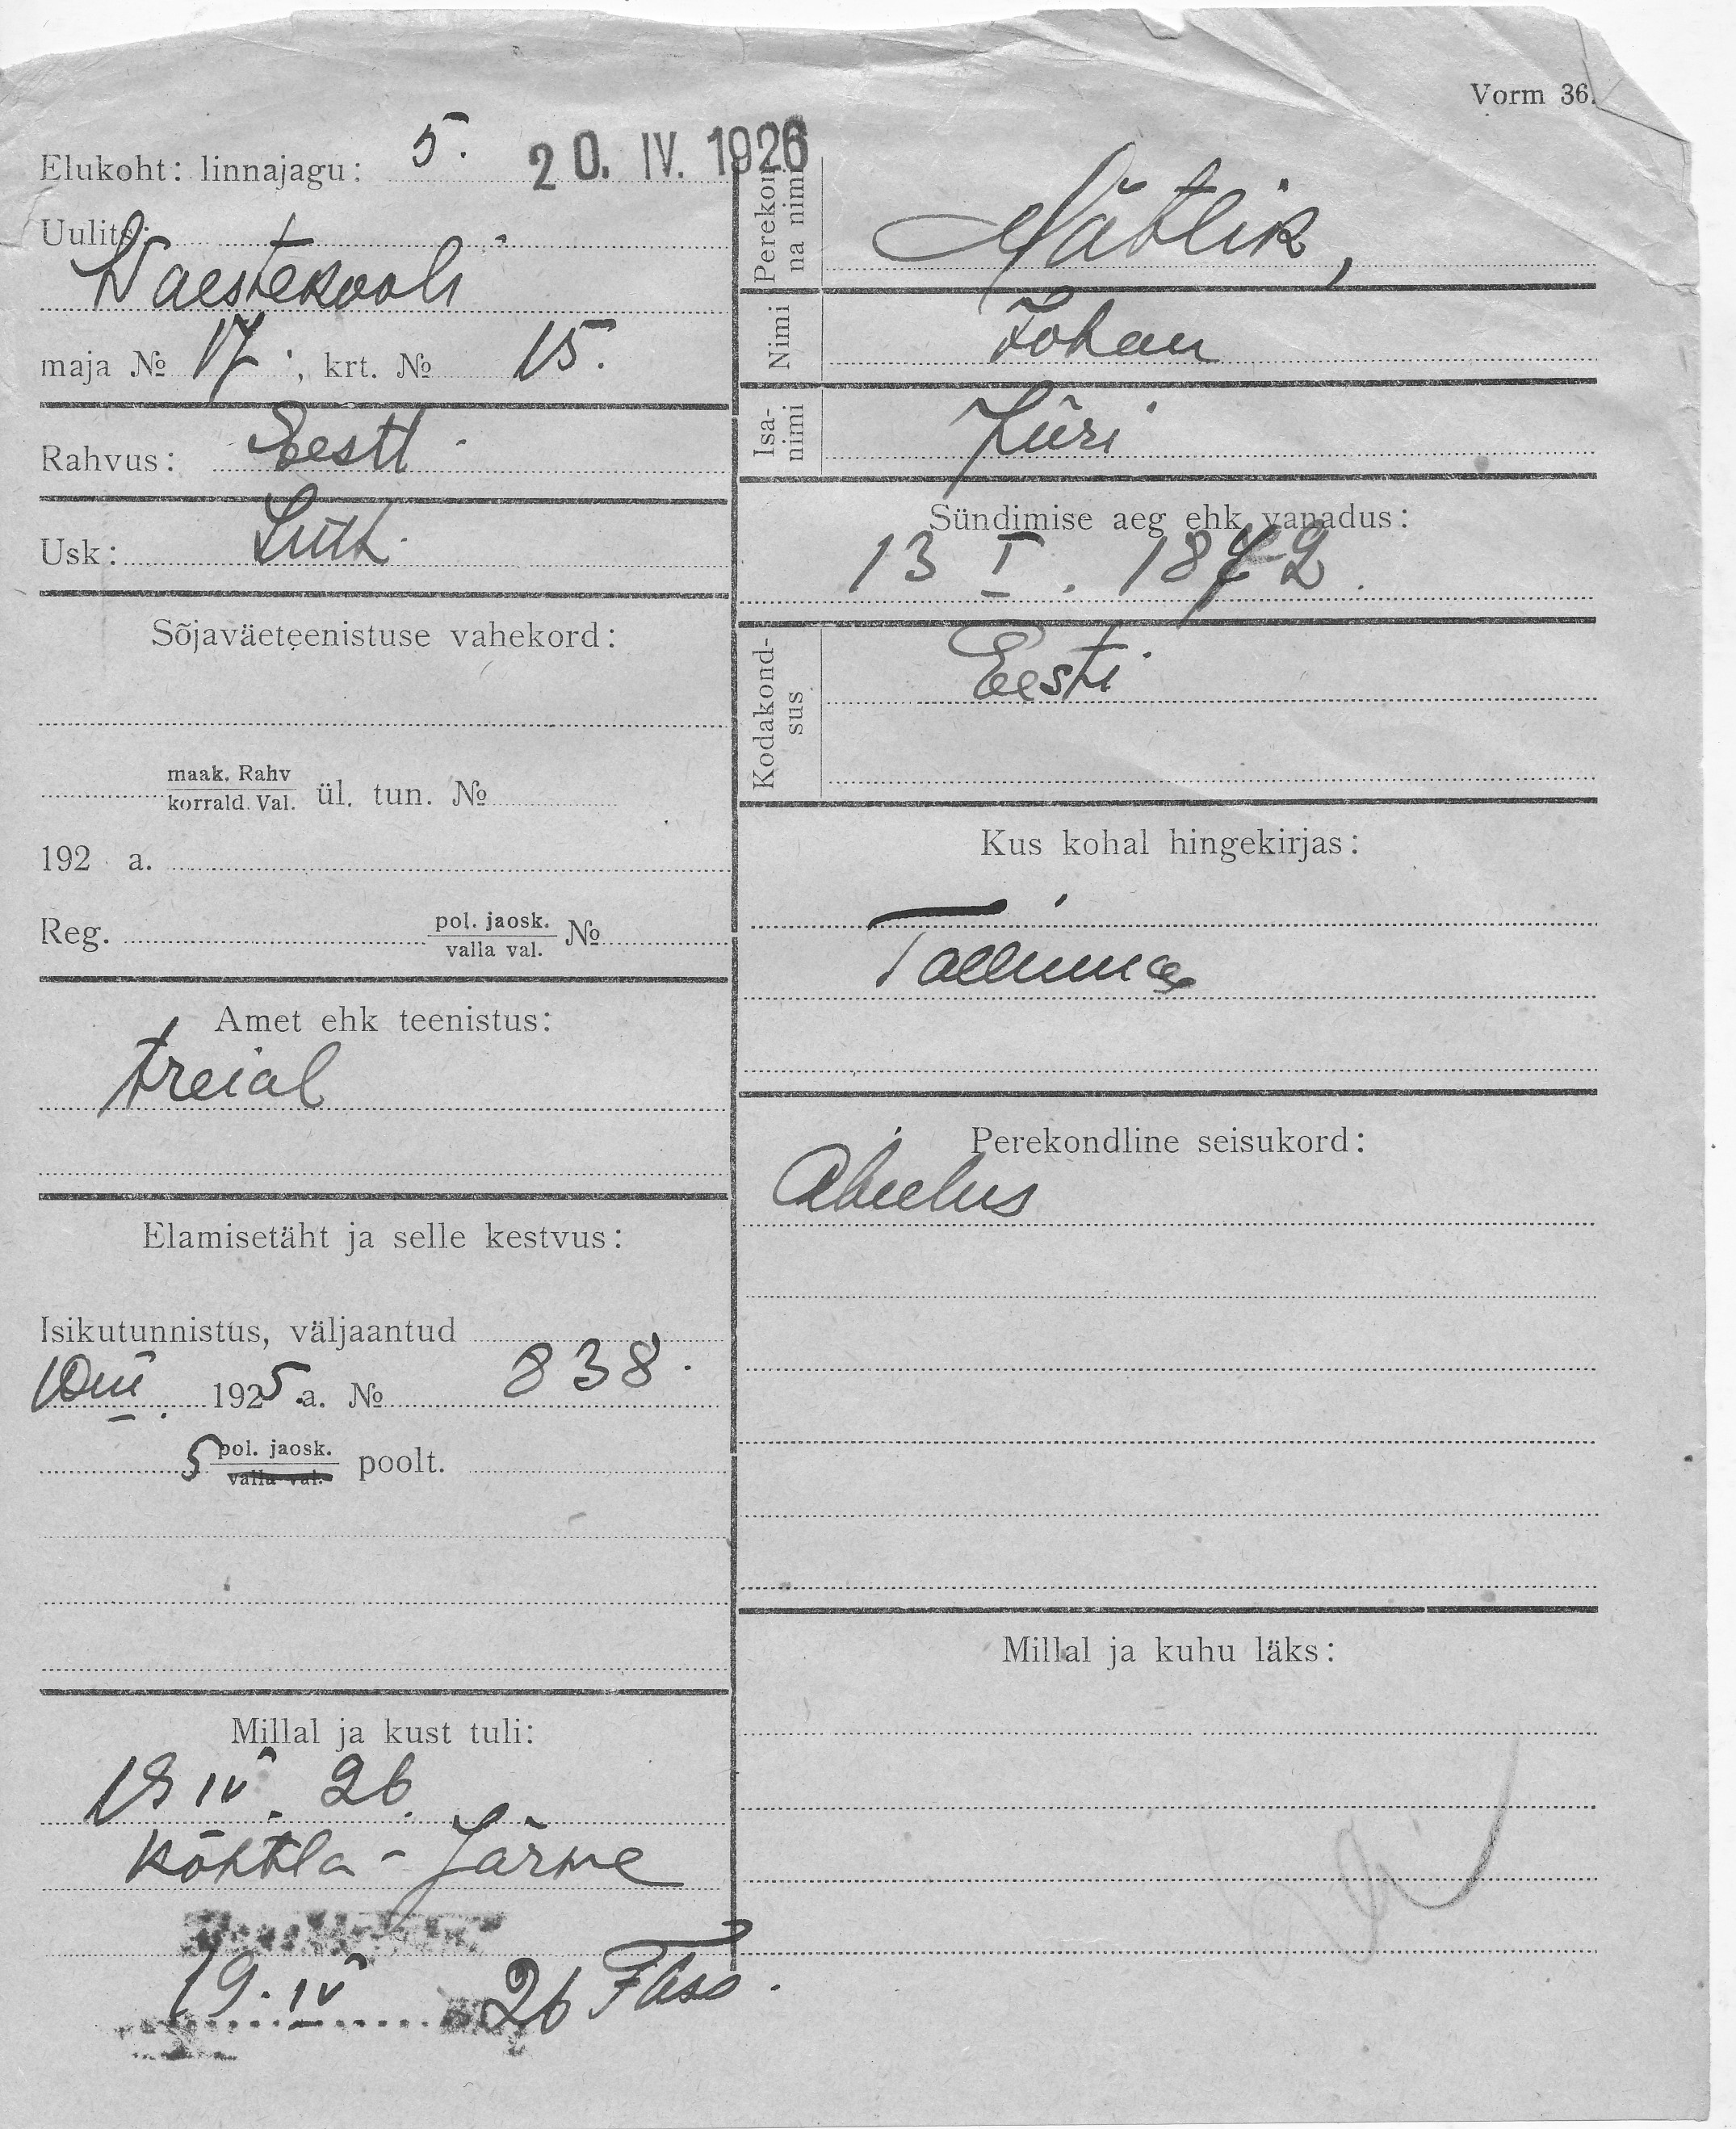 Vorm 36.
Elukoht: linnajagu: 5. 20. IV. 1926
Uulits:
Waestekooli
maja № 17., krt. № 15.
Rahvus: Eesti
Usk: Luth.
Sõjaväeteenistuse vahekord:
maak. Rahv
korrald. Val. ül. tun. №
192 a.
Reg. pol. jaosk. №
valla val.
Amet ehk teenistus:
treial
Elamisetäht ja selle kestvus:
Isikutunnistus, väljaantud
1925 a. № 838.
5 pol. jaosk. poolt.
valla val.
Millal ja kust tuli:
IV. 26.
Kohtla-Järwe
19. IV 26
Perekonna nimi Nätlik,
Nimi Johan
Isanimi Jüri
Sündimise aeg ehk vanadus:
13 I. 1872.
Kodakondsus Eesti
Kus kohal hingekirjas:
Tallinnas
Perekondline seisukord:
Abielus
Millal ja kuhu läks: